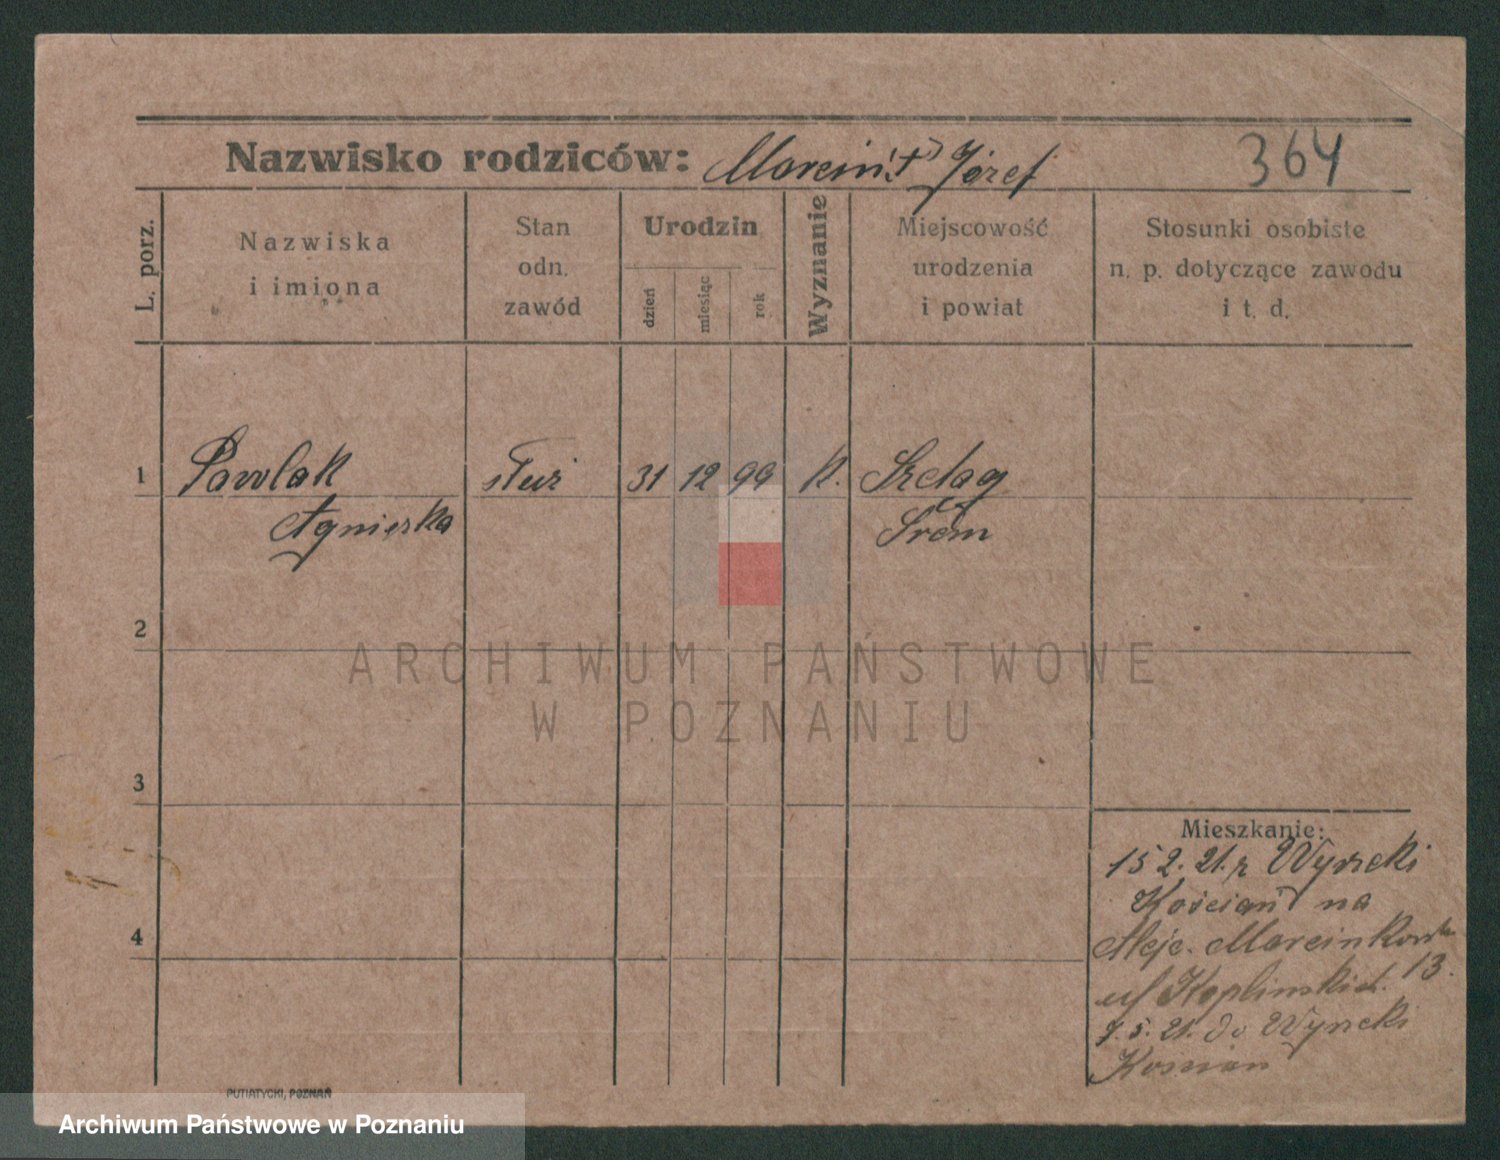 Nazwisko rodziców: Marcin † Józef
364
L. porz.
Nazwiska
i imiona
Stan
odn.
zawód
Urodzin
dzień
miesiąc
rok
Wyznanie
Miejscowość
urodzenia
i powiat
Stosunki osobiste
n. p. dotyczące zawodu
i t. d.
1 Pawlak służ 31 12 99 k.
Agnieszka Śrem
2
ARCHIWUM PAŃSTWOWE
W POZNANIU
3
4
Mieszkanie:
15 2. 21. z
Kościan na
Aleje. Marcinkowsk
13.
7. 5. 21. do
Kościan
PUTIATYCKI, POZNAŃ
Archiwum Państwowe w Poznaniu